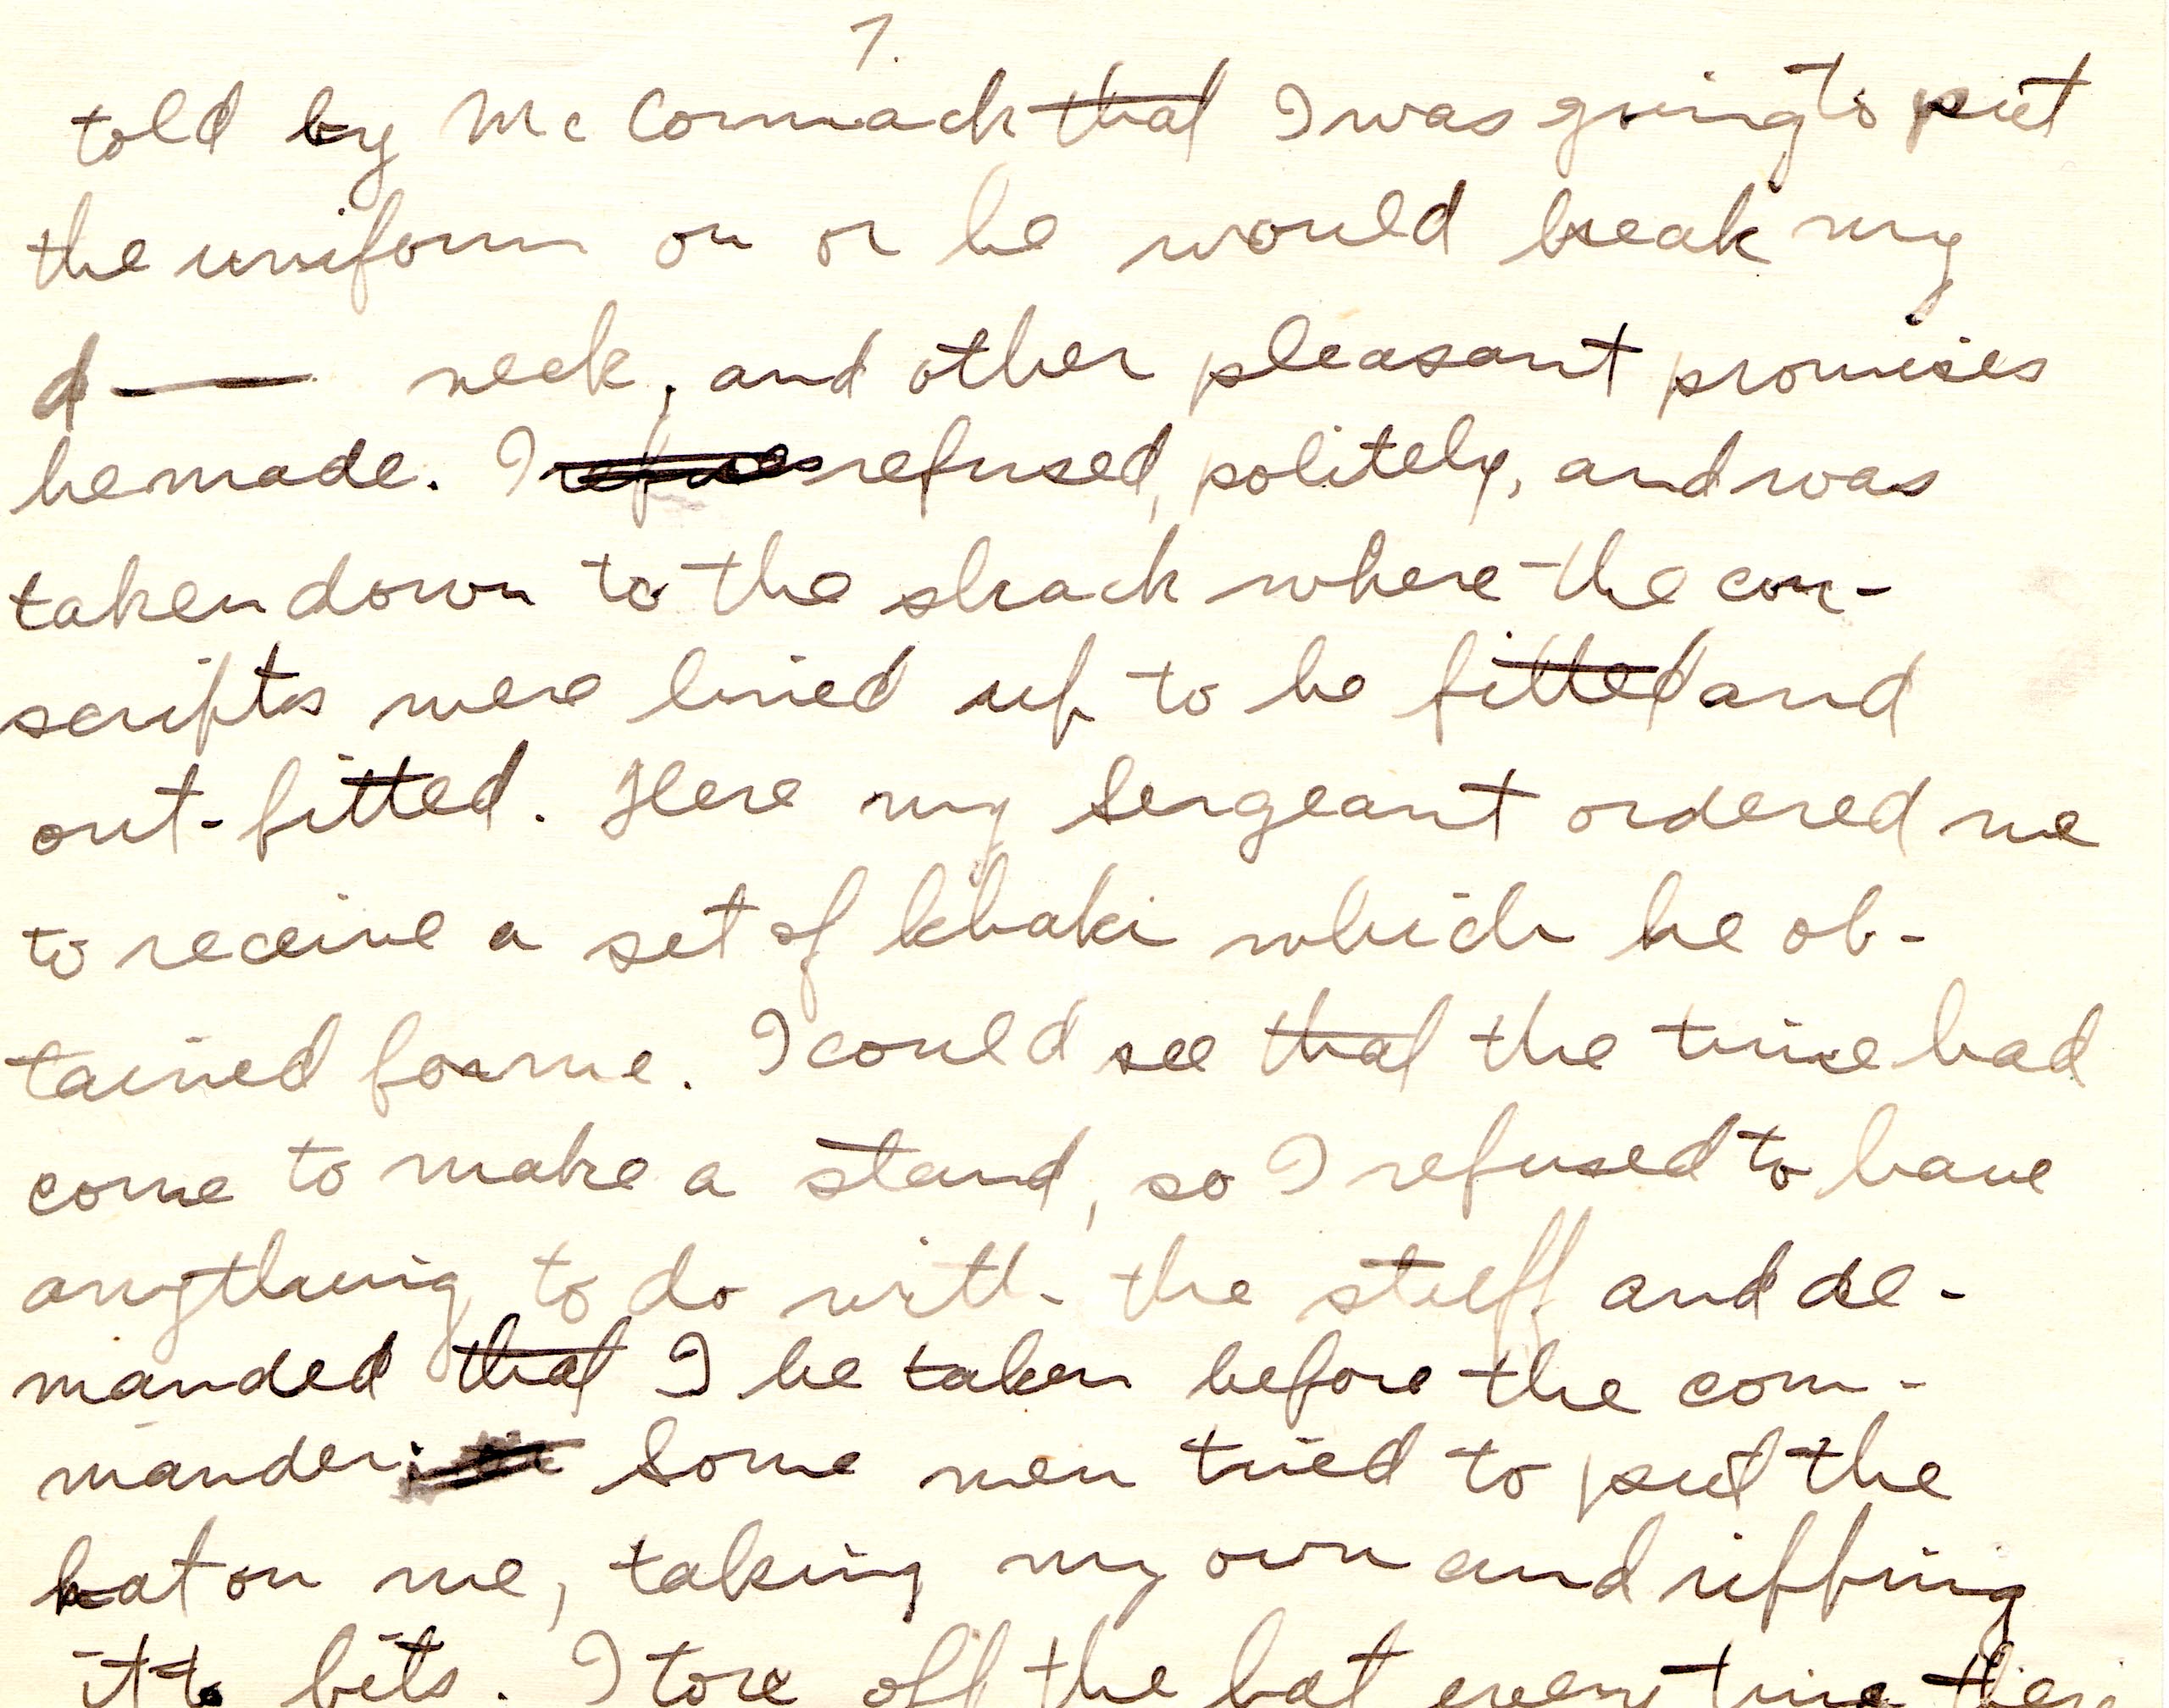 7.
told by McCormack that I was going to put
the uniform on or he would break my
d—— neck, and other pleasant promises
he made. I refuses refused, politely, and was
taken down to the shack where the con-
scripts were lined up to be fitted and
out-fitted. Here my Sergeant ordered me
to receive a set of khaki which he ob-
tained for me. I could see that the time had
come to make a stand, so I refused to have
anything to do with the stuff and de-
manded that I be taken before the com-
mander. Some men tried to put the
hat on me, taking my own and ripping
it to bits. I tore off the hat every time they